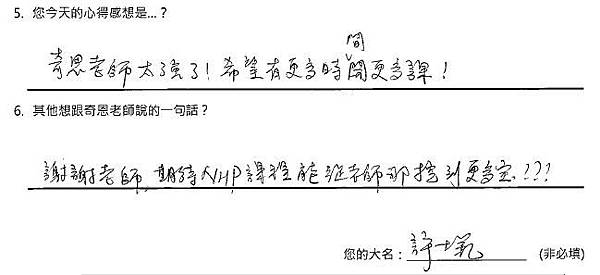 5. 您今天的心得感想是...？
奇恩老師太強了！希望有更多時間開更多課！
6. 其他想跟奇恩老師說的一句話？
謝謝老師，期待NHP課程能從老師那挖到更多寶???
您的大名：許 (非必填)